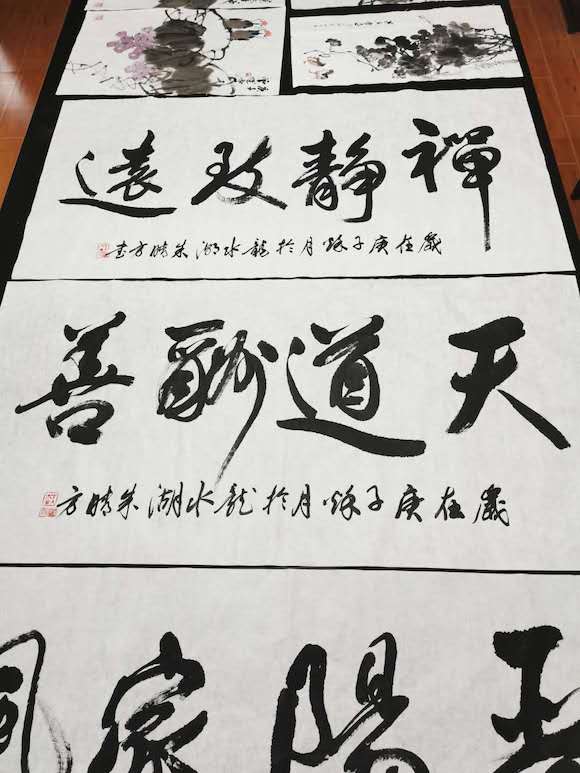 禪靜致遠
歲在庚子秋月於龍水湖朱方書
天道酬善
歲在庚子秋月於龍水湖朱方
陽家